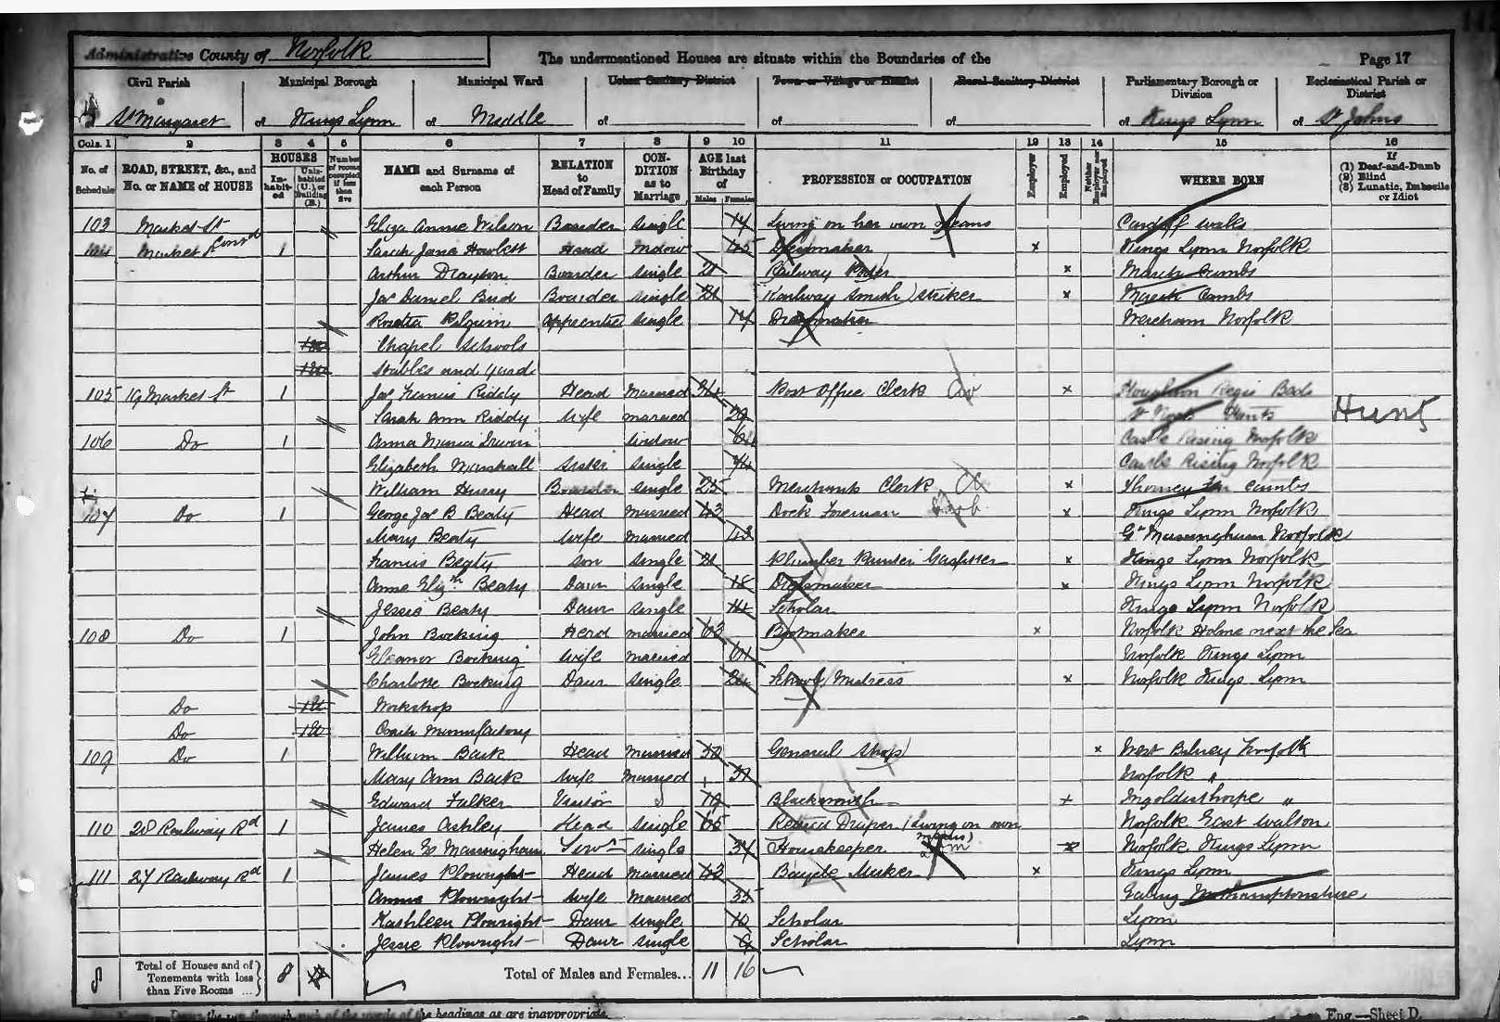 Administrative County of Norfolk
The undermentioned Houses are situate within the Boundaries of the
Page 17
Civil Parish
Municipal Borough
Municipal Ward
Urban Sanitary District
Town or Village or Hamlet
Rural Sanitary District
Parliamentary Borough or Division
Ecclesiastical Parish or District
St Margaret
of Kings Lynn
of Middle
of
of
of
of Kings Lynn
of St Johns
Cols. 1 2 3 4 5 6 7 8 9 10 11 12 13 14 15 16
No. of Schedule
ROAD, STREET, &c., and No. or NAME of HOUSE
HOUSES
Inhabited
Uninhabited (U.) or Building (B.)
Number of rooms occupied if less than five
NAME and Surname of each Person
RELATION to Head of Family
CONDITION as to Marriage
AGE last Birthday of
Males Females
PROFESSION or OCCUPATION
Employer
Employed
Neither Employer nor Employed
WHERE BORN
If (1) Deaf-and-Dumb (2) Blind (3) Lunatic, Imbecile or Idiot
103 Market St Eliza Annie Wilson Boarder Single 74 Living on her own Means Cardiff Wales
104 Market 1 Sarah Jane Howlett Head Widow 45 Dressmaker x Kings Lynn Norfolk
Arthur Drayton Boarder Single 21 Railway Porter x March Cambs
Jas Daniel Bird Boarder Single 21 Railway Smith (striker x March Cambs
Rosetta Pilgrim Apprentice Single 17 Dressmaker Wereham Norfolk
Chapel Schools
Stables and yard
105 19 Market St 1 Jas Francis Riddy Head Married 34 Post Office Clerk x Houghton Regis Beds
Sarah Ann Riddy Wife Married 29 St Neots Hunts Hunts
106 Do 1 Anna Maria Irwin Widow 64 Castle Rising Norfolk
Elizabeth Marshall Sister Single 74 Castle Rising Norfolk
William Huery Boarder Single 25 Merchants Clerk x Thorney Cambs
107 Do 1 George Jas B Beaty Head Married 43 Dock Foreman x Kings Lynn Norfolk
Mary Beaty Wife Married 43 Gt Massingham Norfolk
Francis Beaty Son Single 21 Plumber Painter Gasfitter x Kings Lynn Norfolk
Anne Elizth Beaty Daur Single 18 Dressmaker x Kings Lynn Norfolk
Jessie Beaty Daur Single 14 Scholar Kings Lynn Norfolk
108 Do 1 John Bocking Head Married 63 Bootmaker x Norfolk Holme next the Sea
Eleanor Bocking Wife Married 61 Norfolk Kings Lynn
Charlotte Bocking Daur Single School Mistress x Norfolk Kings Lynn
Do Workshop
Do Manufactory
109 Do 1 William Back Head Married 32 General Shop x West Bilney Norfolk
Mary Ann Back Wife Married 31 Norfolk "
Edward Falker Visitor S 19 Blacksmith x Ingoldisthorpe "
110 28 Railway Rd 1 James Oakley Head Single 65 Retired Draper (Living on own means) Norfolk East Walton
Helen E Manningham Servt Single 34 Housekeeper Dom x Norfolk Kings Lynn
111 27 Railway Rd 1 James Plowright Head Married 43 Bicycle Maker x Kings Lynn
Annie Plowright Wife Married 35 Northamptonshire
Kathleen Plowright Daur Single 10 Scholar Lynn
Jessie Plowright Daur Single 9 Scholar Lynn
8 Total of Houses and of Tenements with less than Five Rooms 8 Total of Males and Females... 11 16
Eng.—Sheet D.